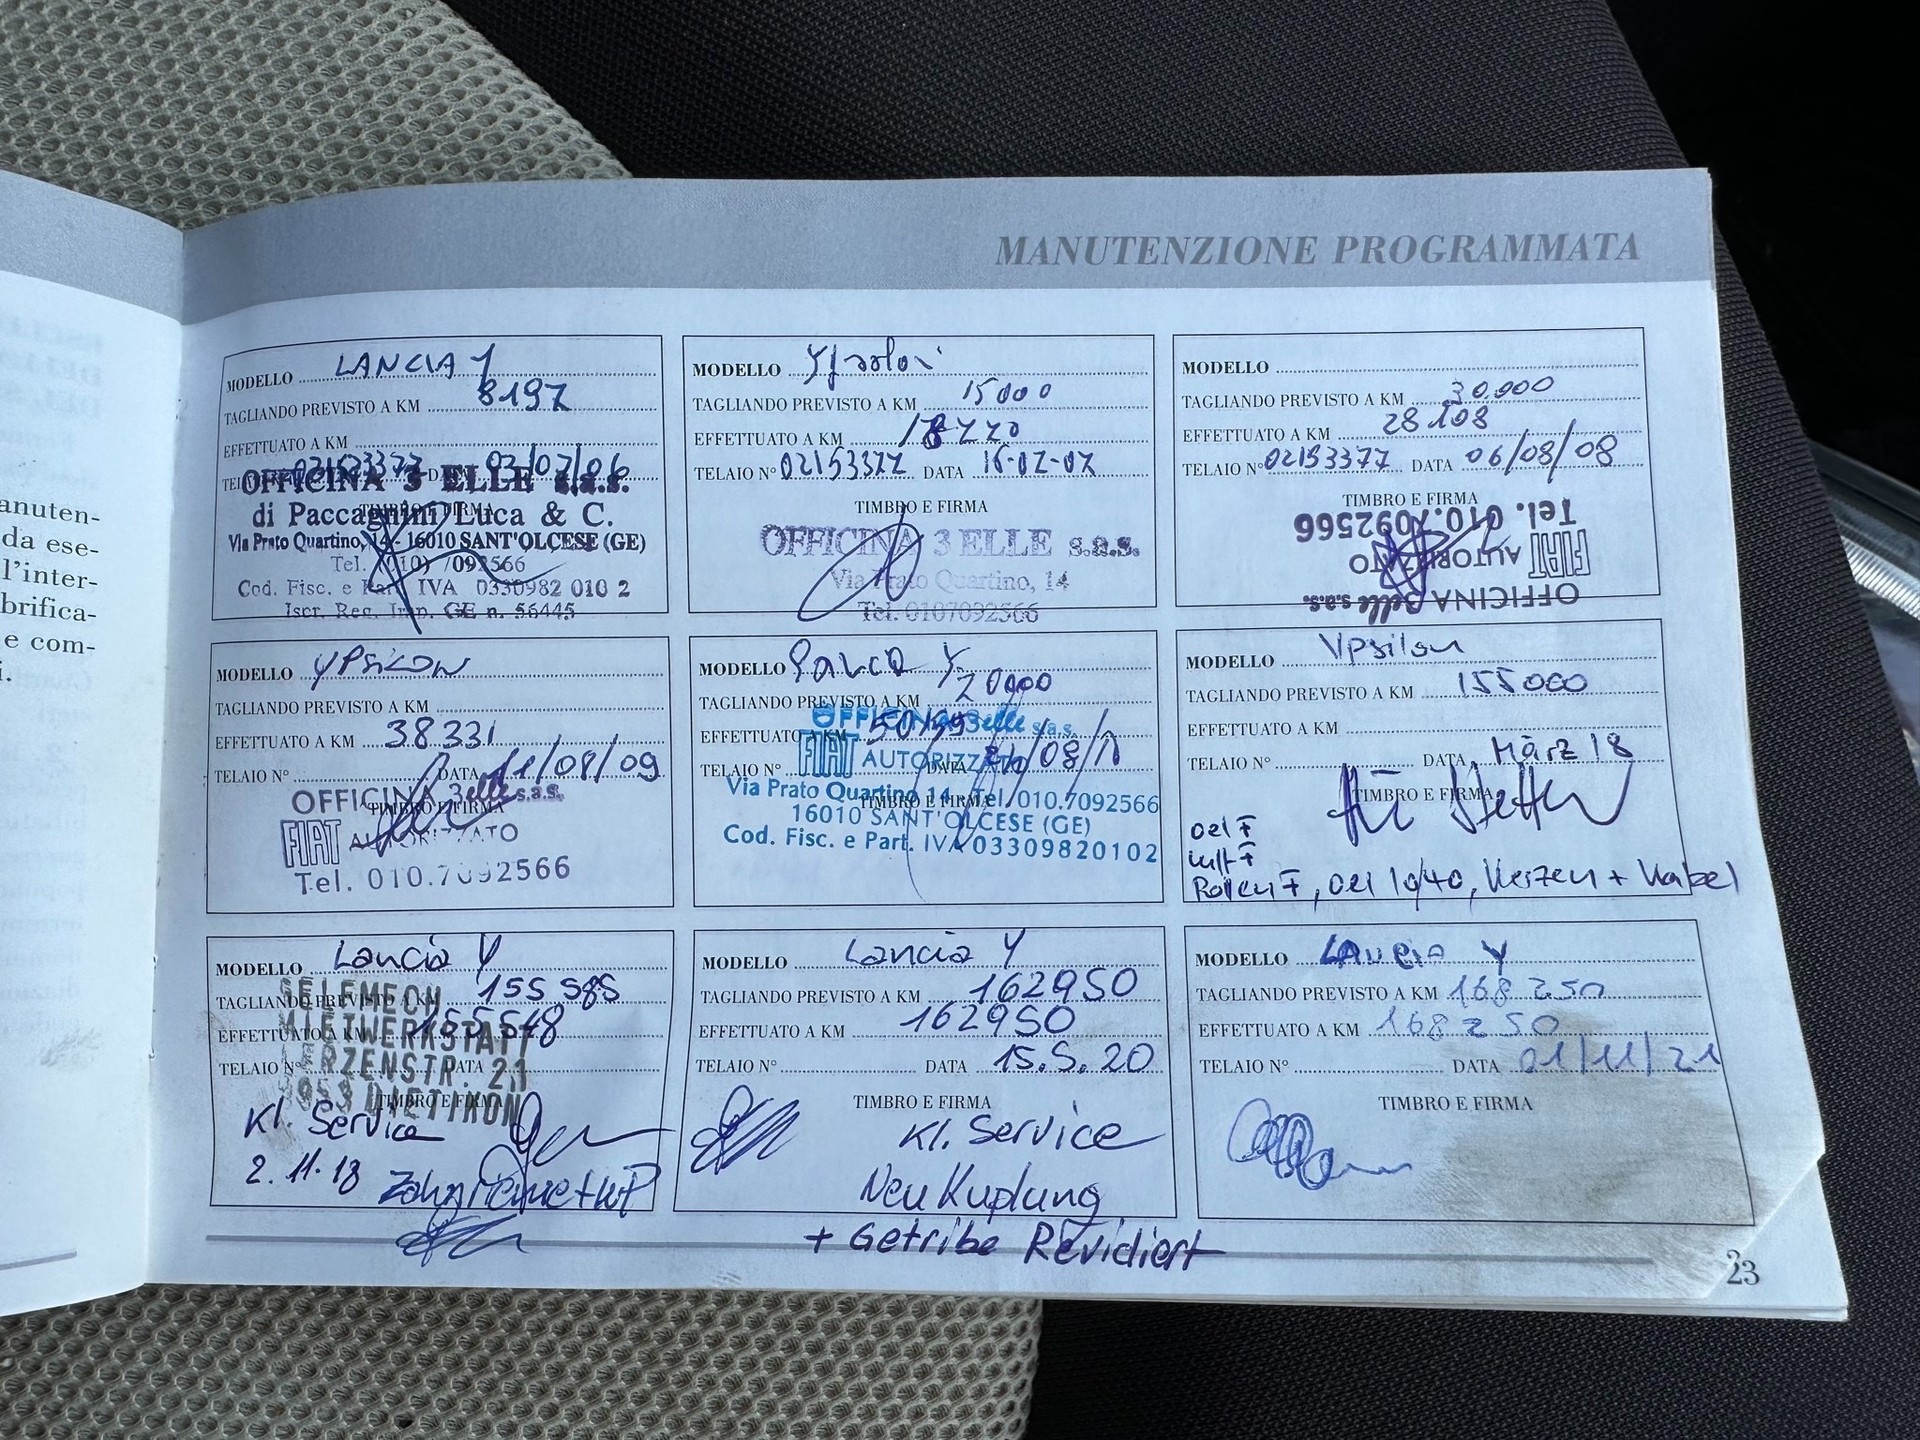 MANUTENZIONE PROGRAMMATA
anuten-
da ese-
l'inter-
brifica-
e com-
i.
MODELLO LANCIA Y
TAGLIANDO PREVISTO A KM 8197
EFFETTUATO A KM
02153377 03/07/06
OFFICINA 3 ELLE s.a.s.
TIMBRO E FIRMA
di Paccagnini Luca & C.
Via Prato Quartino, 14 - 16010 SANT'OLCESE (GE)
Tel. (010) 7092566
Cod. Fisc. e Part. IVA 0330982 010 2
Iscr. Reg. Imp. GE n. 56445
MODELLO
TAGLIANDO PREVISTO A KM 15000
EFFETTUATO A KM 18220
TELAIO N° 02153377 DATA 16-07-07
TIMBRO E FIRMA
OFFICINA 3 ELLE s.a.s.
Via Prato Quartino, 14
Tel. 0107092566
MODELLO
TAGLIANDO PREVISTO A KM 30.000
EFFETTUATO A KM 28108
TELAIO N° 02153377 DATA 06/08/08
TIMBRO E FIRMA
OFFICINA 3elle s.a.s.
FIAT AUTORIZZATO
Tel. 010.7092566
MODELLO YPSILON
TAGLIANDO PREVISTO A KM
EFFETTUATO A KM 38331
TELAIO N° DATA 11/08/09
OFFICINA 3elle s.a.s.
TIMBRO E FIRMA
FIAT AUTORIZZATO
Tel. 010.7092566
MODELLO Lancia Y
TAGLIANDO PREVISTO A KM 20000
OFFICINA 3elle s.a.s.
EFFETTUATO A KM
FIAT AUTORIZZATO
TELAIO N° DATA
Via Prato Quartino 14 Tel. 010.7092566
TIMBRO E FIRMA
16010 SANT'OLCESE (GE)
Cod. Fisc. e Part. IVA 03309820102
MODELLO Ypsilon
TAGLIANDO PREVISTO A KM 155000
EFFETTUATO A KM
TELAIO N° DATA März 18
TIMBRO E FIRMA
Oel F
Luft F
Pollen F, Oel 10/40, Kerzen + Kabel
MODELLO Lancia Y
TAGLIANDO PREVISTO A KM 155 585
EFFETTUATO A KM
TELAIO N° DATA
TIMBRO E FIRMA
SELEMECH
MIETWERKSTATT
ERZENSTR. 21
8953 DIETIKON
Kl. Service
2.11.18 Zahnrieme + WP
MODELLO Lancia Y
TAGLIANDO PREVISTO A KM 162950
EFFETTUATO A KM 162950
TELAIO N° DATA 15.5.20
TIMBRO E FIRMA
Kl. Service
Neu Kuplung
+ Getribe Revidiert
MODELLO LANCIA Y
TAGLIANDO PREVISTO A KM 168 250
EFFETTUATO A KM 168 250
TELAIO N° DATA 01/11/21
TIMBRO E FIRMA
23